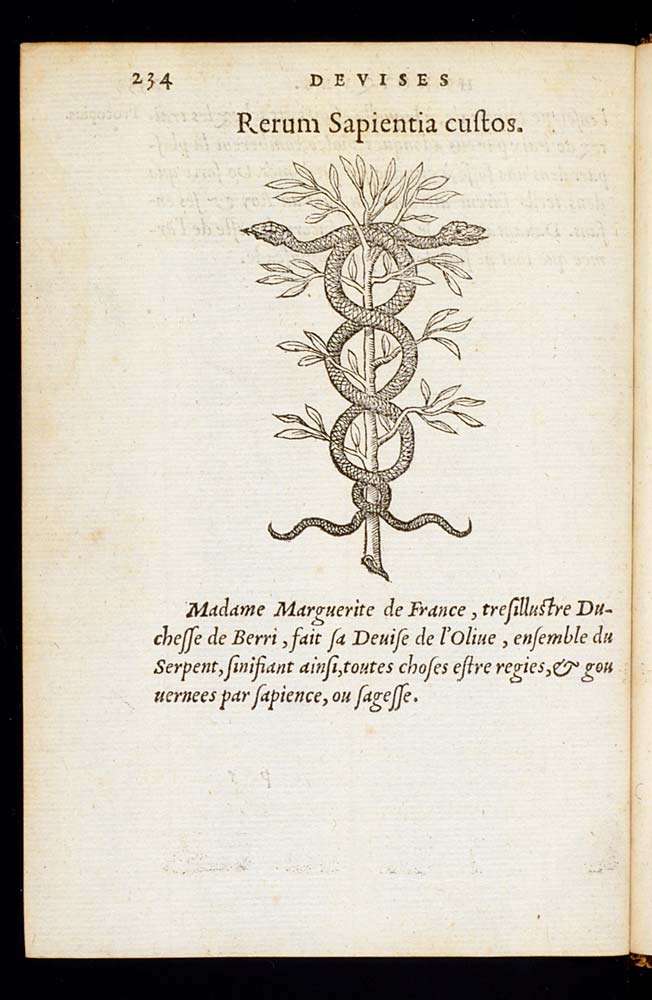 234 DEVISES
Rerum Sapientia cuſtos.
Madame Marguerite de France, treſilluſtre Du-
cheſſe de Berri, fait ſa Deuiſe de l'Oliue, enſemble du
Serpent, ſinifiant ainſi, toutes choſes eſtre regies, & gou
uernees par ſapience, ou ſageſſe.